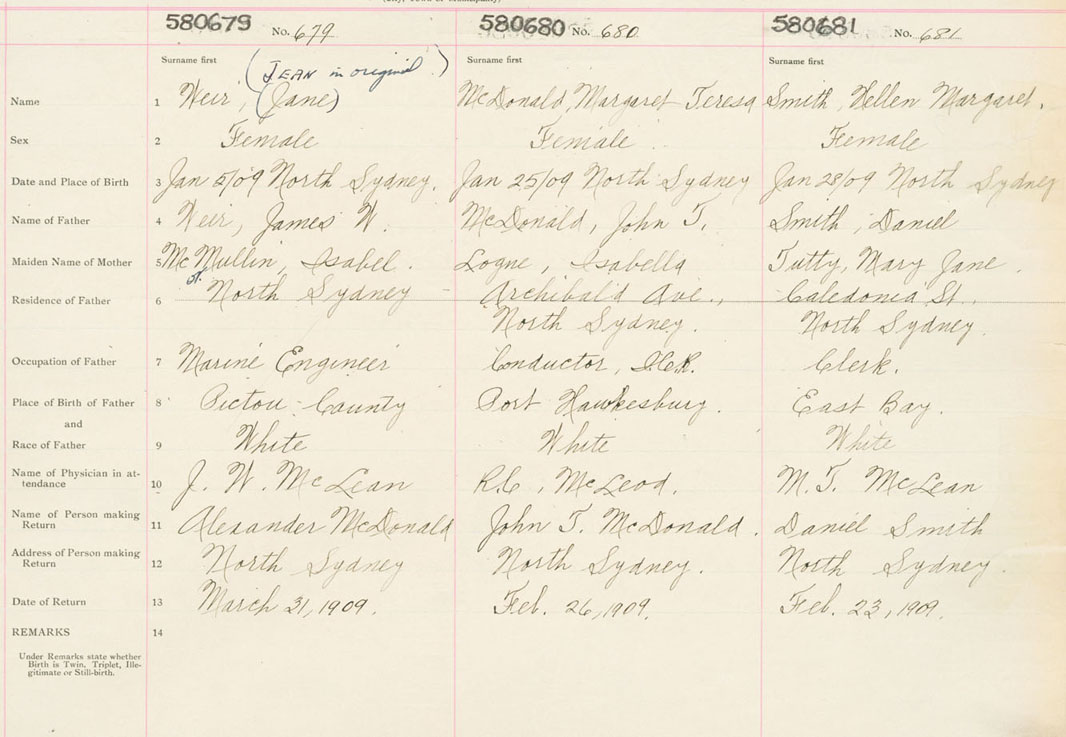 580679 No. 679 580680 No. 680 580681 No. 681
Surname first (JEAN in original) Surname first Surname first
Name 1 Weir, (Jane) McDonald, Margaret Teresa Smith, Hellen Margaret.
Sex 2 Female Female Female
Date and Place of Birth 3 Jan 5/09 North Sydney. Jan 25/09 North Sydney Jan 28/09 North Sydney
Name of Father 4 Weir, James W. McDonald, John T. Smith, Daniel
Maiden Name of Mother 5 McMullin, Isabel. Logue, Isabella Tutty, Mary Jane.
Residence of Father 6 North Sydney Archibald Ave., Caledonia St.
North Sydney. North Sydney.
Occupation of Father 7 Marine Engineer Conductor, I.C.R. Clerk.
Place of Birth of Father 8 Pictou County Port Hawkesbury. East Bay.
and
Race of Father 9 White White White
Name of Physician in at-
tendance 10 J. W. McLean R.C. McLeod. M. T. McLean
Name of Person making
Return 11 Alexander McDonald John T. McDonald. Daniel Smith
Address of Person making
Return 12 North Sydney North Sydney. North Sydney.
Date of Return 13 March 31, 1909. Feb. 26, 1909. Feb. 23, 1909.
REMARKS 14
Under Remarks state whether
Birth is Twin, Triplet, Ille-
gitimate or Still-birth.